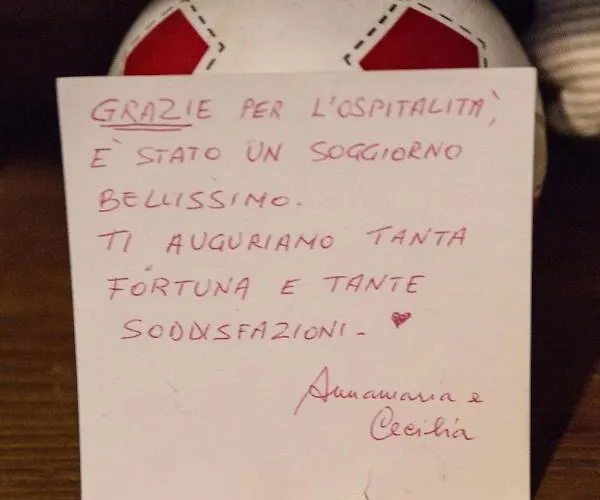 GRAZIE PER L'OSPITALITÀ,
E' STATO UN SOGGIORNO
BELLISSIMO.
TI AUGURIAMO TANTA
FORTUNA E TANTE
SODDISFAZIONI. ♥
Annamaria e
Cecilia